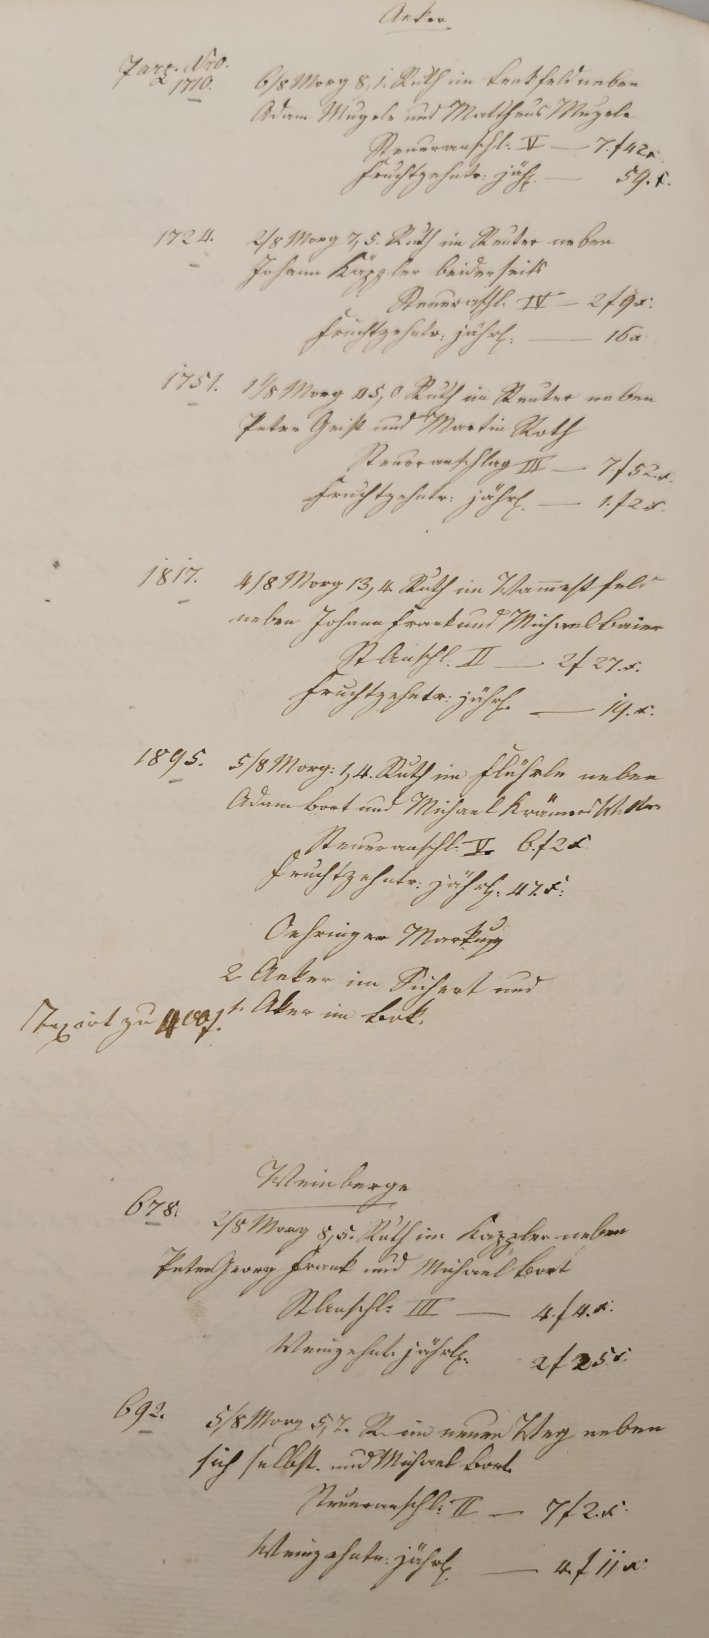 Aeker
Parz. Nro.
1710. 6/8 Morg 8,1. Ruth im neben
Adam Mugele und Matthäus Mugele
Steueranschl: V — 7.f 42x.
Fruchtzehntr: jährl. — 59.x.
1724. 2/8 Morg 7,5. Ruth im Reuter neben
Johann Käppler beiderseits
Steueraschl. IV — 2f 9x:
Fruchtzehntr: jährl: — 16x
1751. 1 1/8 Morg 45,0 Ruth im Reuter neben
Peter Geist und Martin Roth
Steueranschlag III — 7f 52.x.
Fruchtzehntr: jährl. — 1.f 2x.
1817. 4/8 Morg 13,4. Ruth im
neben Johann Frank und Michael Baier
St Anschl. II — 2f 27.x.
Fruchtzehntr: jährl. — 19.x.
1895. 5/8 Morg: 1,4. Ruth im Flührle neben
Adam Bort und Michael Krämers
Steueranschl: V. 6.f 2x
Fruchtzehntr: jährl: 47.x:
Oehringer Markung
2 Aeker im und
Taxirt zu 400f. 1. Aker im Bok.
Weinberge
678. 2/8 Morg 8,5. Ruth im Kappler neben
Peter Georg Frank und Michael Bort
St Anschl: III — 4.f 4.x:
Weinzehnt. jährl. 2f 25x:
692. 5/8 Morg 5,7. R. im neuen Weg neben
sich selbst. und Michael Bort.
Steueranschl: II — 7f 2.x:
Weinzehntr: jährl. — 4.f 11x: